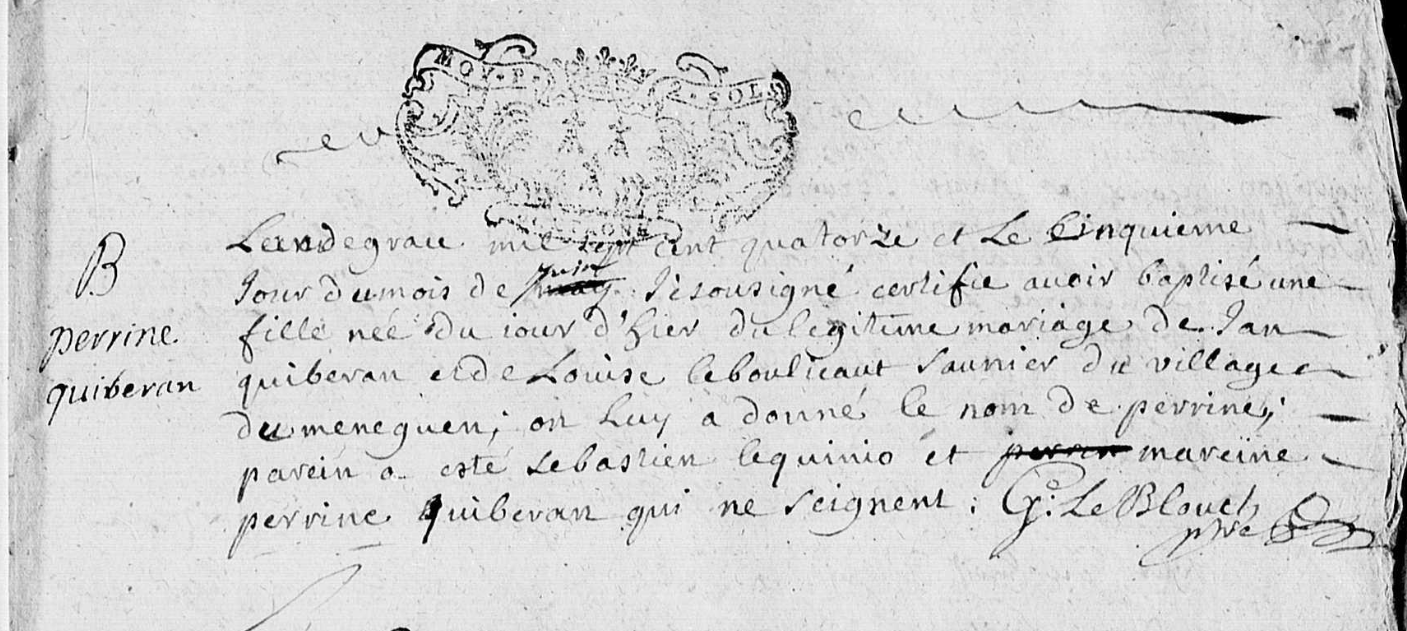 MOY. P. 2. SOLS
B
perrine
quiberan
Lean de grace mil sept cent quatorze et Le Cinquieme
Jour du mois de juin Je sousigné certifie avoir baptisé une
fille née du iour d'hier du legitime mariage de Jan
quiberan et de Louise leboulicaut saunier du village
du meneguen; on Luy a donné le nom de perrine;
parein a esté sebastien lequinio et mareine
perrine quiberan qui ne seignent: G: Le Blouch
ptre